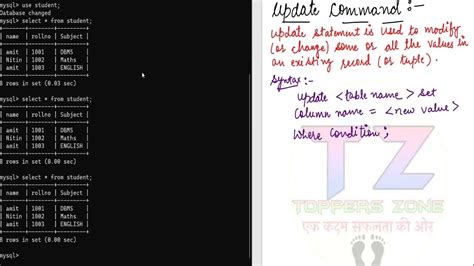 mysql> use student;
Database changed
mysql> select * from student;
| name | rollno | Subject |
| amit | 1001 | DBMS |
| Nitin | 1002 | Maths |
| amit | 1003 | ENGLISH |
8 rows in set (0.03 sec)
mysql> select * from student;
| name | rollno | Subject |
| amit | 1001 | DBMS |
| Nitin | 1002 | Maths |
| amit | 1003 | ENGLISH |
8 rows in set (0.00 sec)
mysql> select * from student;
| name | rollno | Subject |
| amit | 1001 | DBMS |
| Nitin | 1002 | Maths |
| amit | 1003 | ENGLISH |
8 rows in set (0.00 sec)
mysql>
Update Command :-
Update statement is used to modify
(or change) some or all the values in
an existing record (or tuple).
Syntax :-
Update <table name> set
Column name = <new value>
Where Condition;
TZ
TOPPERS ZONE
एक कदम सफलता की ओर